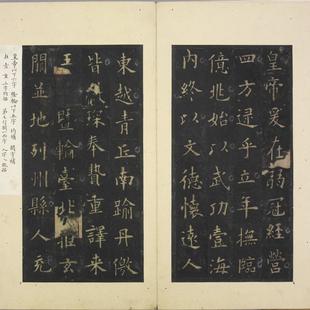 皇帝爰在弱冠經營
四方逮乎立年撫臨
億兆始以武功壹海
內終以文德懷遠人
東越青丘南踰丹徼
皆琛奉贄重譯來
王暨輪臺北拒玄
闕並地列州縣人充